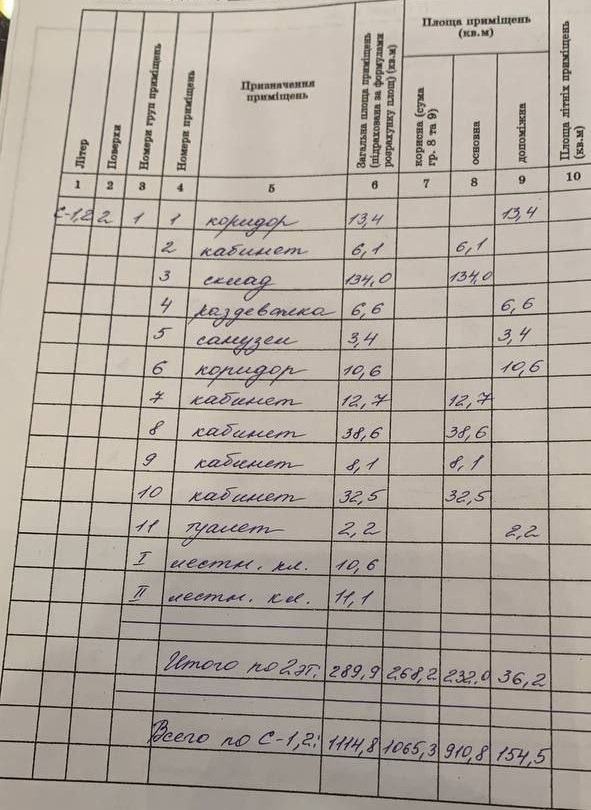 Літер
Поверхи
Номери груп приміщень
Номери приміщень
Призначення
приміщень
Загальна площа приміщень
(підрахована за формулами
розрахунку площ) (кв.м)
Площа приміщень
(кв.м)
корисна (сума
гр. 8 та 9)
основна
допоміжна
Площа літніх приміщень
(кв.м)
1 2 3 4 5 6 7 8 9 10
С-1,2 2 1 1 коридор 13,4 13,4
2 кабинет 6,1 6,1
3 склад 134,0 134,0
4 раздевалка 6,6 6,6
5 санузел 3,4 3,4
6 коридор 10,6 10,6
7 кабинет 12,7 12,7
8 кабинет 38,6 38,6
9 кабинет 8,1 8,1
10 кабинет 32,5 32,5
11 туалет 2,2 2,2
I лестн. кл. 10,6
II лестн. кл. 11,1
Итого по 2 эт. 289,9 268,2 232,0 36,2
Всего по С-1,2: 1114,8 1065,3 910,8 154,5